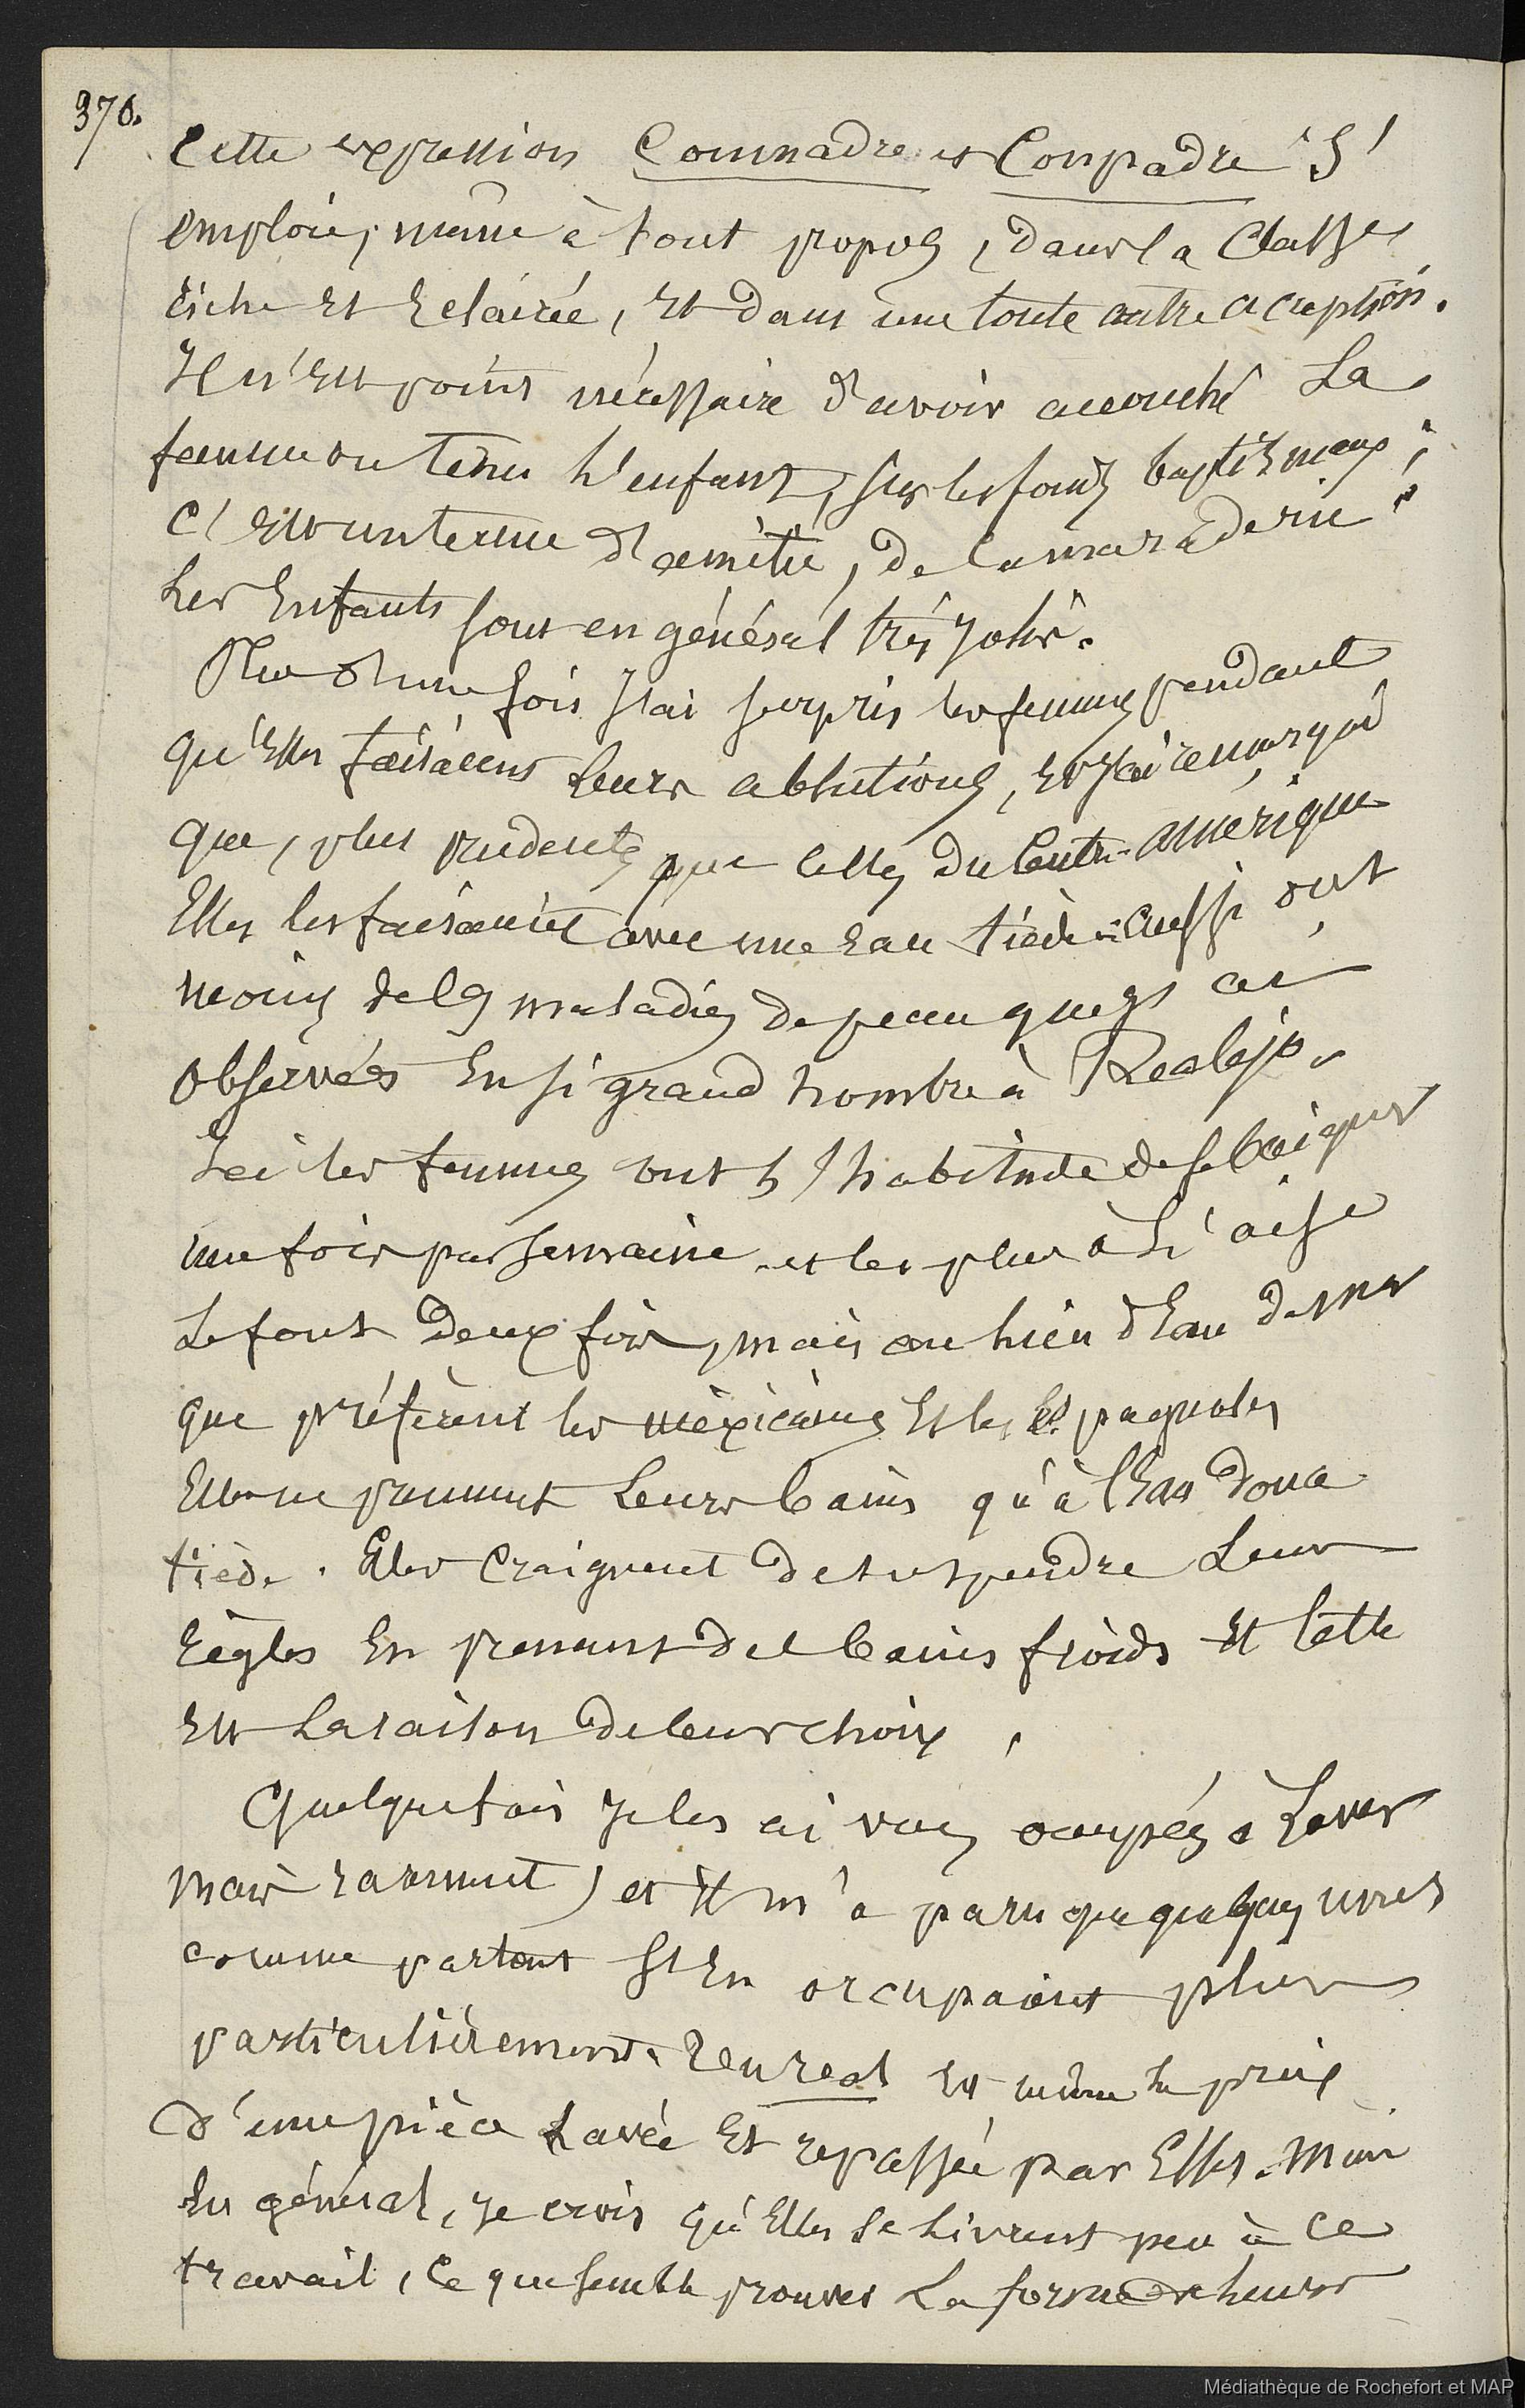 376.
Cette expression Commadre et Compadre S'
emploie, même à tout propos, dans la Classe
riche Et Eclairée, Et dans une toute autre acception.
Il n'Est point nécessaire d'avoir accouché La
femme ou tenu L'enfant, sur les fonts baptismaux ;
C'Est un terme d'amitié, de Camaraderie ;
Les Enfants sont en général très jolis.
Plus d'une fois J'ai surpris les femmes pendant
qu'Elles faisaient Leurs ablutions, Et J'ai remarqué
que, plus prudentes que celles du Centre-amérique
Elles les faisaient avec une Eau tiède : aussi ont
moins de maladies de peau que
observées En si grand nombre à Realejo.
Ici les femmes ont L'habitude de se baigner
une fois par Semaine et les plus à L'aise
Le font Deux fois, mais au Lieu d'Eau de mer
que préfèrent les mexicaines Et les Espagnoles
Elles ne prennent Leurs bains qu'à l'Eau douce
tiède. Elles Craignent de suspendre Leurs
règles En prenant des bains froids Et telle
Est La raison de leur choix.
Quelquefois Je les ai vues occupées à Laver
mais rarement) et Il m'a paru que quelques unes
comme partout S'En occupaient plus
particulièrement. Un real Est même le prix
d'une pièce Lavée Et repassée par Elles. Mais
En général, je crois qu'Elles se Livrent peu à ce
travail, Ce que semble prouver La forme de leurs